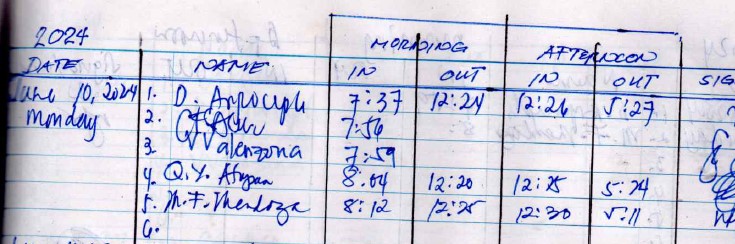 2024
MORNING AFTERNOON
DATE NAME IN OUT IN OUT SIG
June 10, 2024 1. D. 7:37 12:24 12:26 5:27
Monday 2. 7:56
3. Valenzona 7:59
4. Q.Y. 8:04 12:20 12:25 5:24
5. M.F. Mendoza 8:12 12:25 12:30 5:11
6.